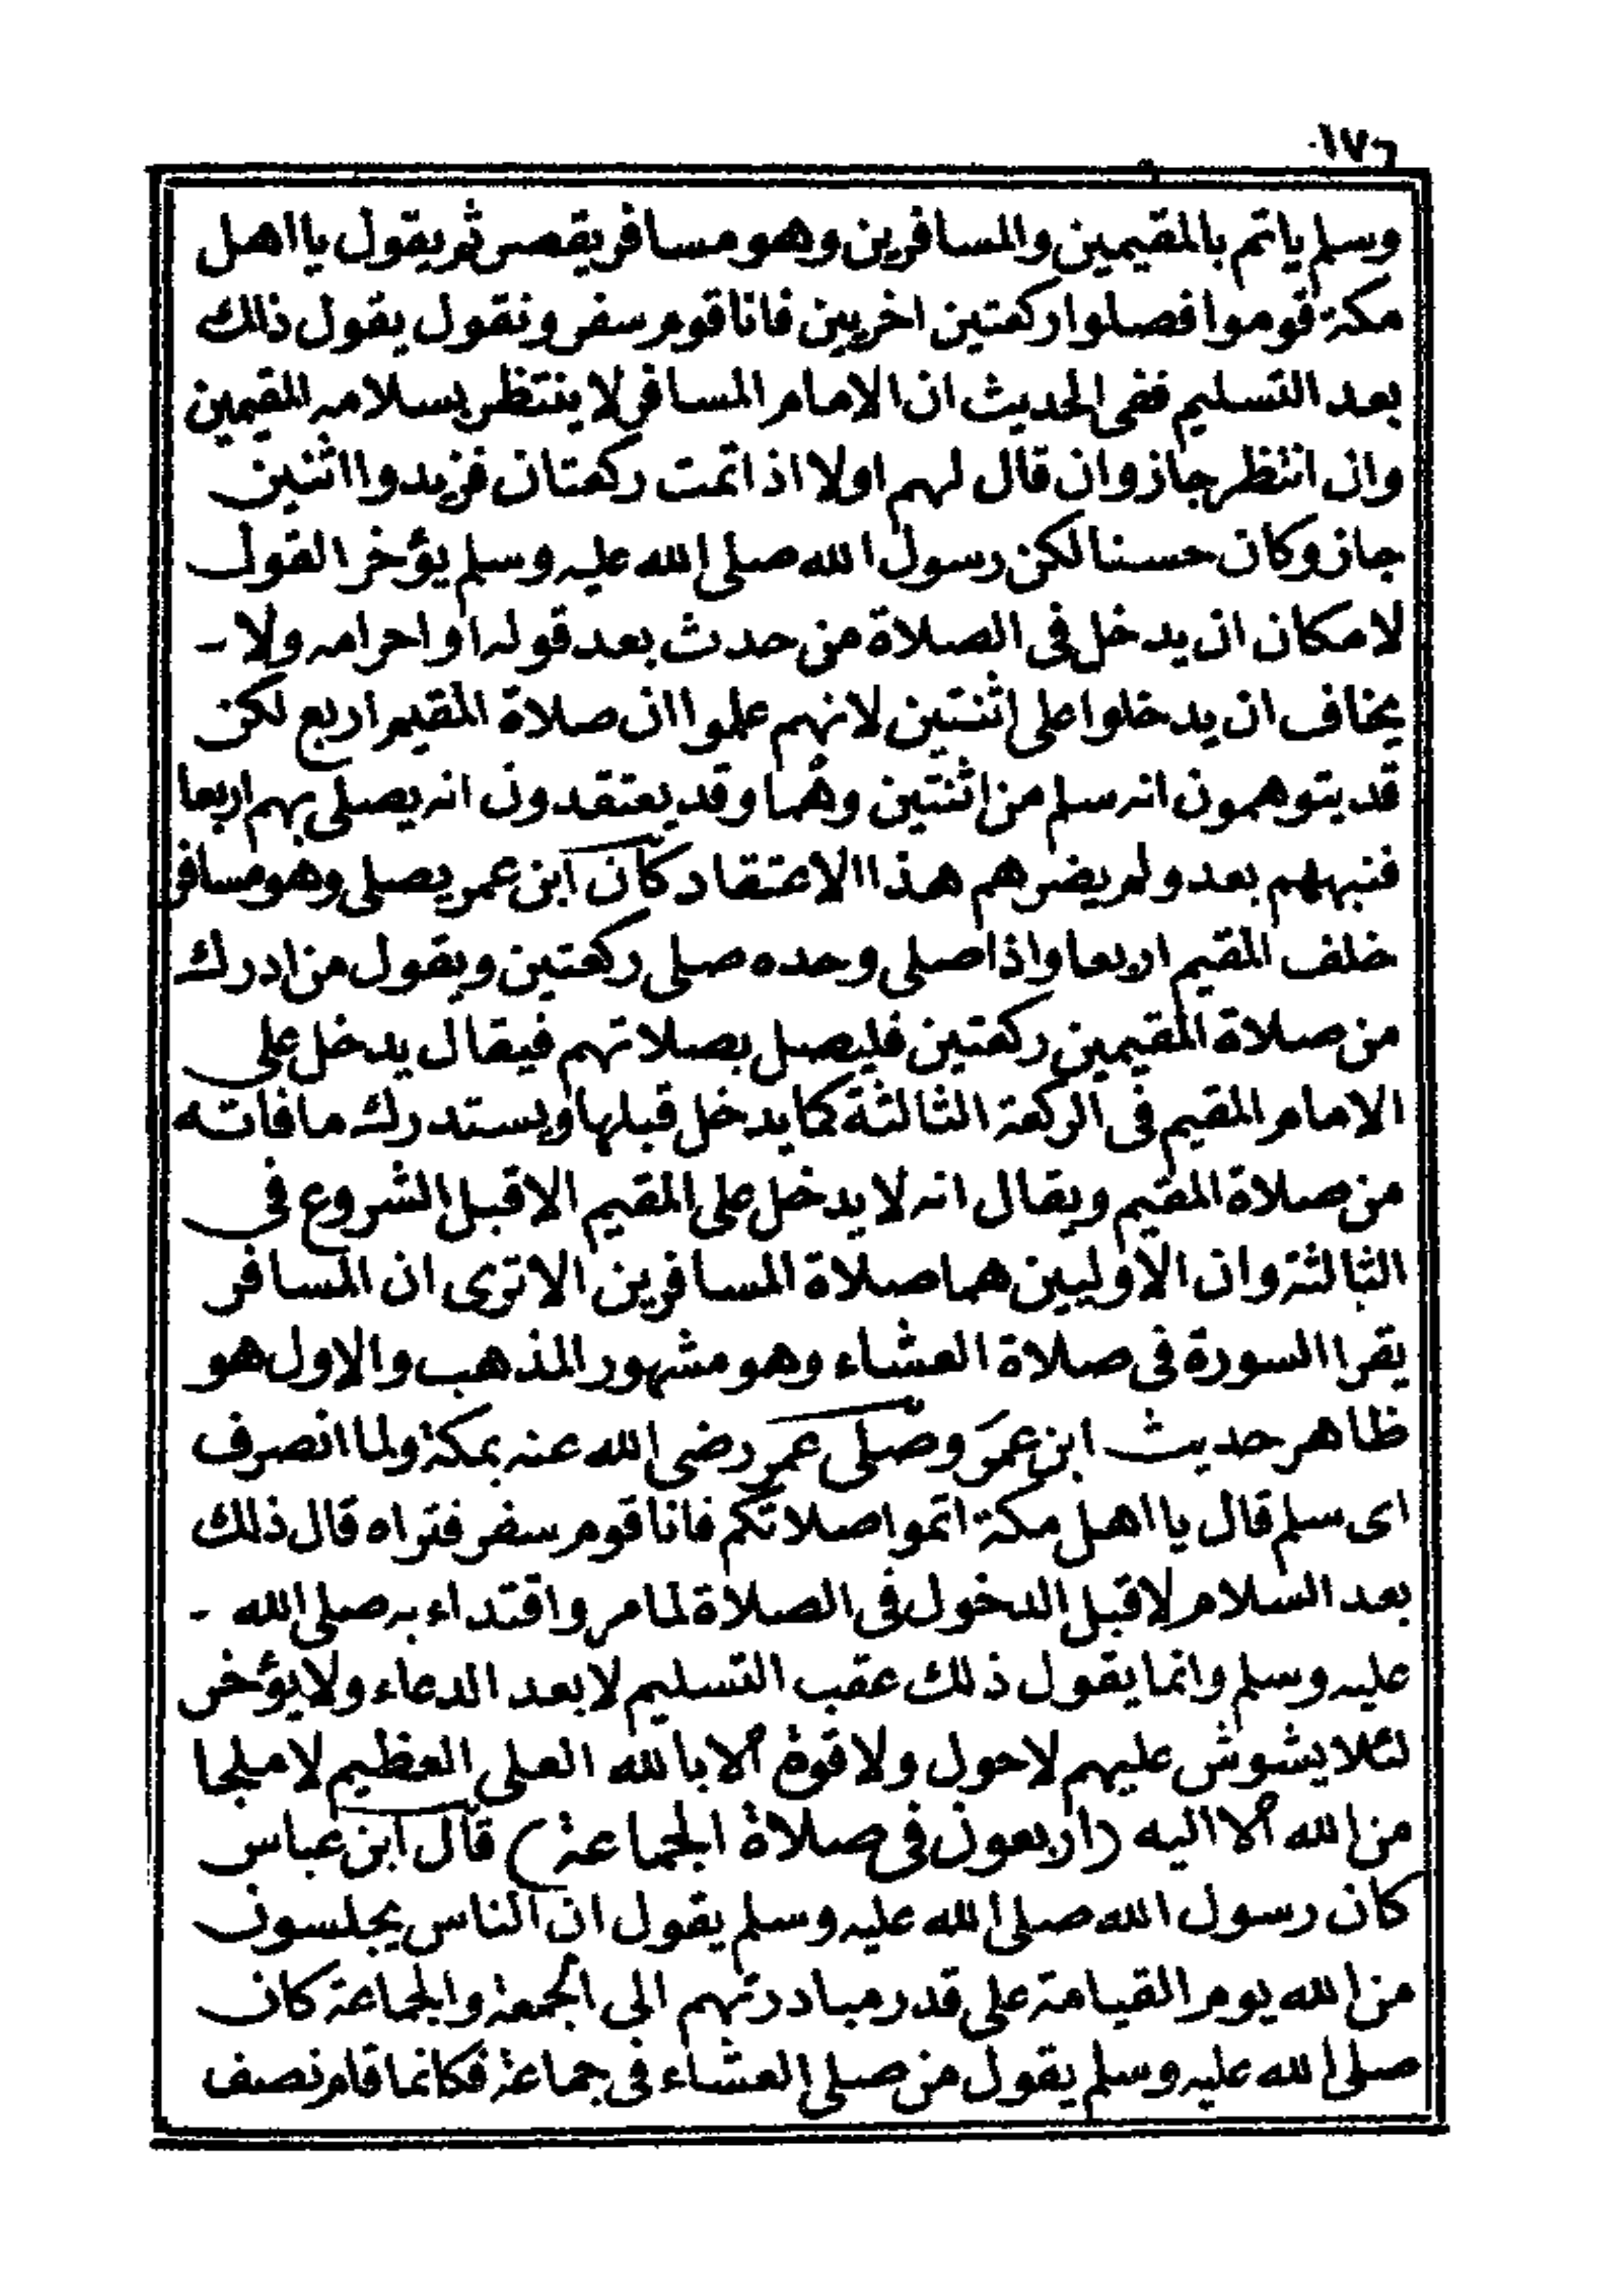 ١٧٦
وسلم ياتم بالمقيمين والمسافرين وهو مسافر يقصر ثم يقول يا اهل
مكة قوموا فصلوا ركعتين اخريين فانا قوم سفر ونقول يقول ذلك
بعد التسليم ففى الحديث ان الامام المسافر لا ينتظر بسلامه المقيمين
وان انتظر جاز وان قال لهم اولا اذا تمت ركعتان فزيدوا اثنين
جاز وكان حسنا لكن رسول الله صلى الله عليه وسلم يؤخر القول
لامكان ان يدخل فى الصلاة من حدث بعد قوله او احرامه ولا -
يخاف ان يدخلوا على اثنتين لانهم علموا ان صلاة المقيم اربع لكن
قد يتوهمون انه سلم من اثنتين وهما وقد يعتقدون انه يصلى بهم اربعا
فنبههم بعد ولم يضرهم هذا الاعتقاد كان ابن عمر يصلى وهو مسافر
خلف المقيم اربعا واذا صلى وحده صلى ركعتين ويقول من ادرك
من صلاة المقيمين ركعتين فليصل بصلاتهم فيقال يدخل على
الامام المقيم فى الركعة الثالثة كما يدخل قبلها ويستدرك ما فاته
من صلاة المقيم ويقال انه لا يدخل على المقيم الا قبل الشروع فى
الثالثة وان الاوليين هما صلاة المسافرين الا ترى ان المسافر
يقرا السورة فى صلاة العشاء وهو مشهور المذهب والاول هو
ظاهر حديث ابن عمر وصلى عمر رضى الله عنه بمكة ولما انصرف
اى سلم قال يا اهل مكة اتموا صلاتكم فانا قوم سفر فتراه قال ذلك
بعد السلام لا قبل الدخول فى الصلاة لما مر واقتداء به صلى الله -
عليه وسلم وانما يقول ذلك عقب التسليم لا بعد الدعاء ولا يؤخر
لئلا يشوش عليهم لا حول ولا قوة الا بالله العلى العظيم لا ملجا
من الله الا اليه (اربعون فى صلاة الجماعة) قال ابن عباس
كان رسول الله صلى الله عليه وسلم يقول ان الناس يجلسون
من الله يوم القيامة على قدر مبادرتهم الى الجمعة والجماعة كان
صلى الله عليه وسلم يقول من صلى العشاء فى جماعة فكانما قام نصف